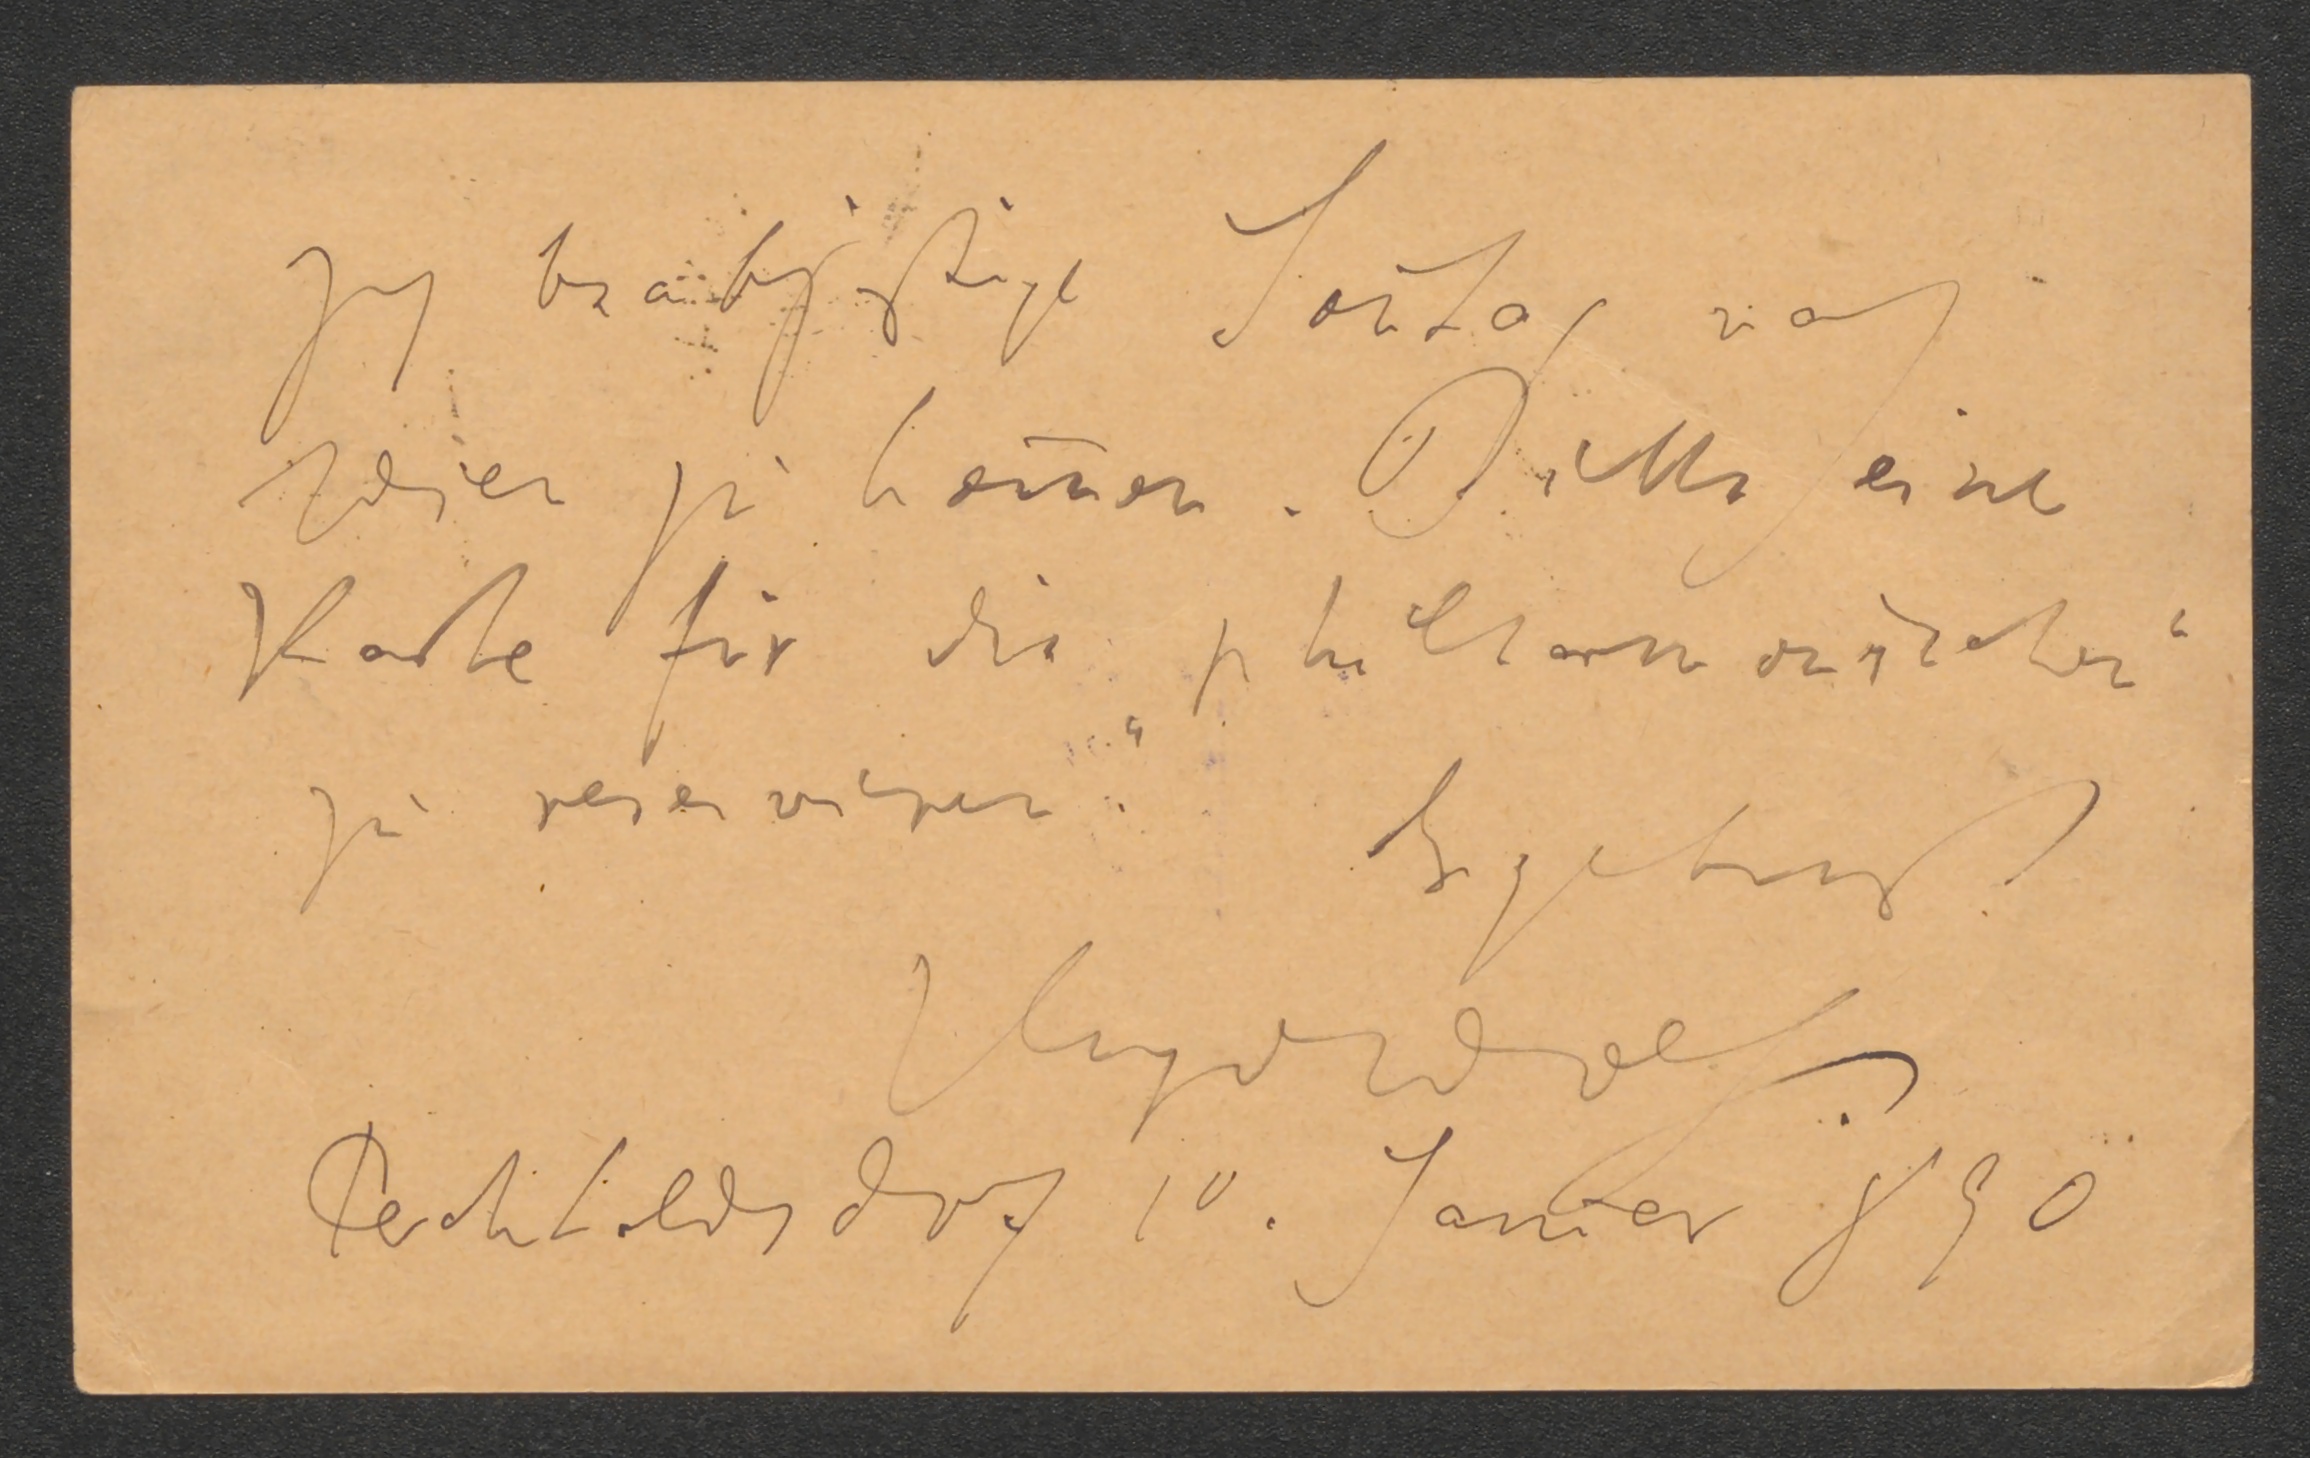 Ich beabsichtige Sontag nach
Wien zu kom̅en. Bitte eine
Karte für die philharmonischen“
zu reservieren.“
Ergebenst
Hugo Wolf
Perchtoldsdorf 10. Januer 890